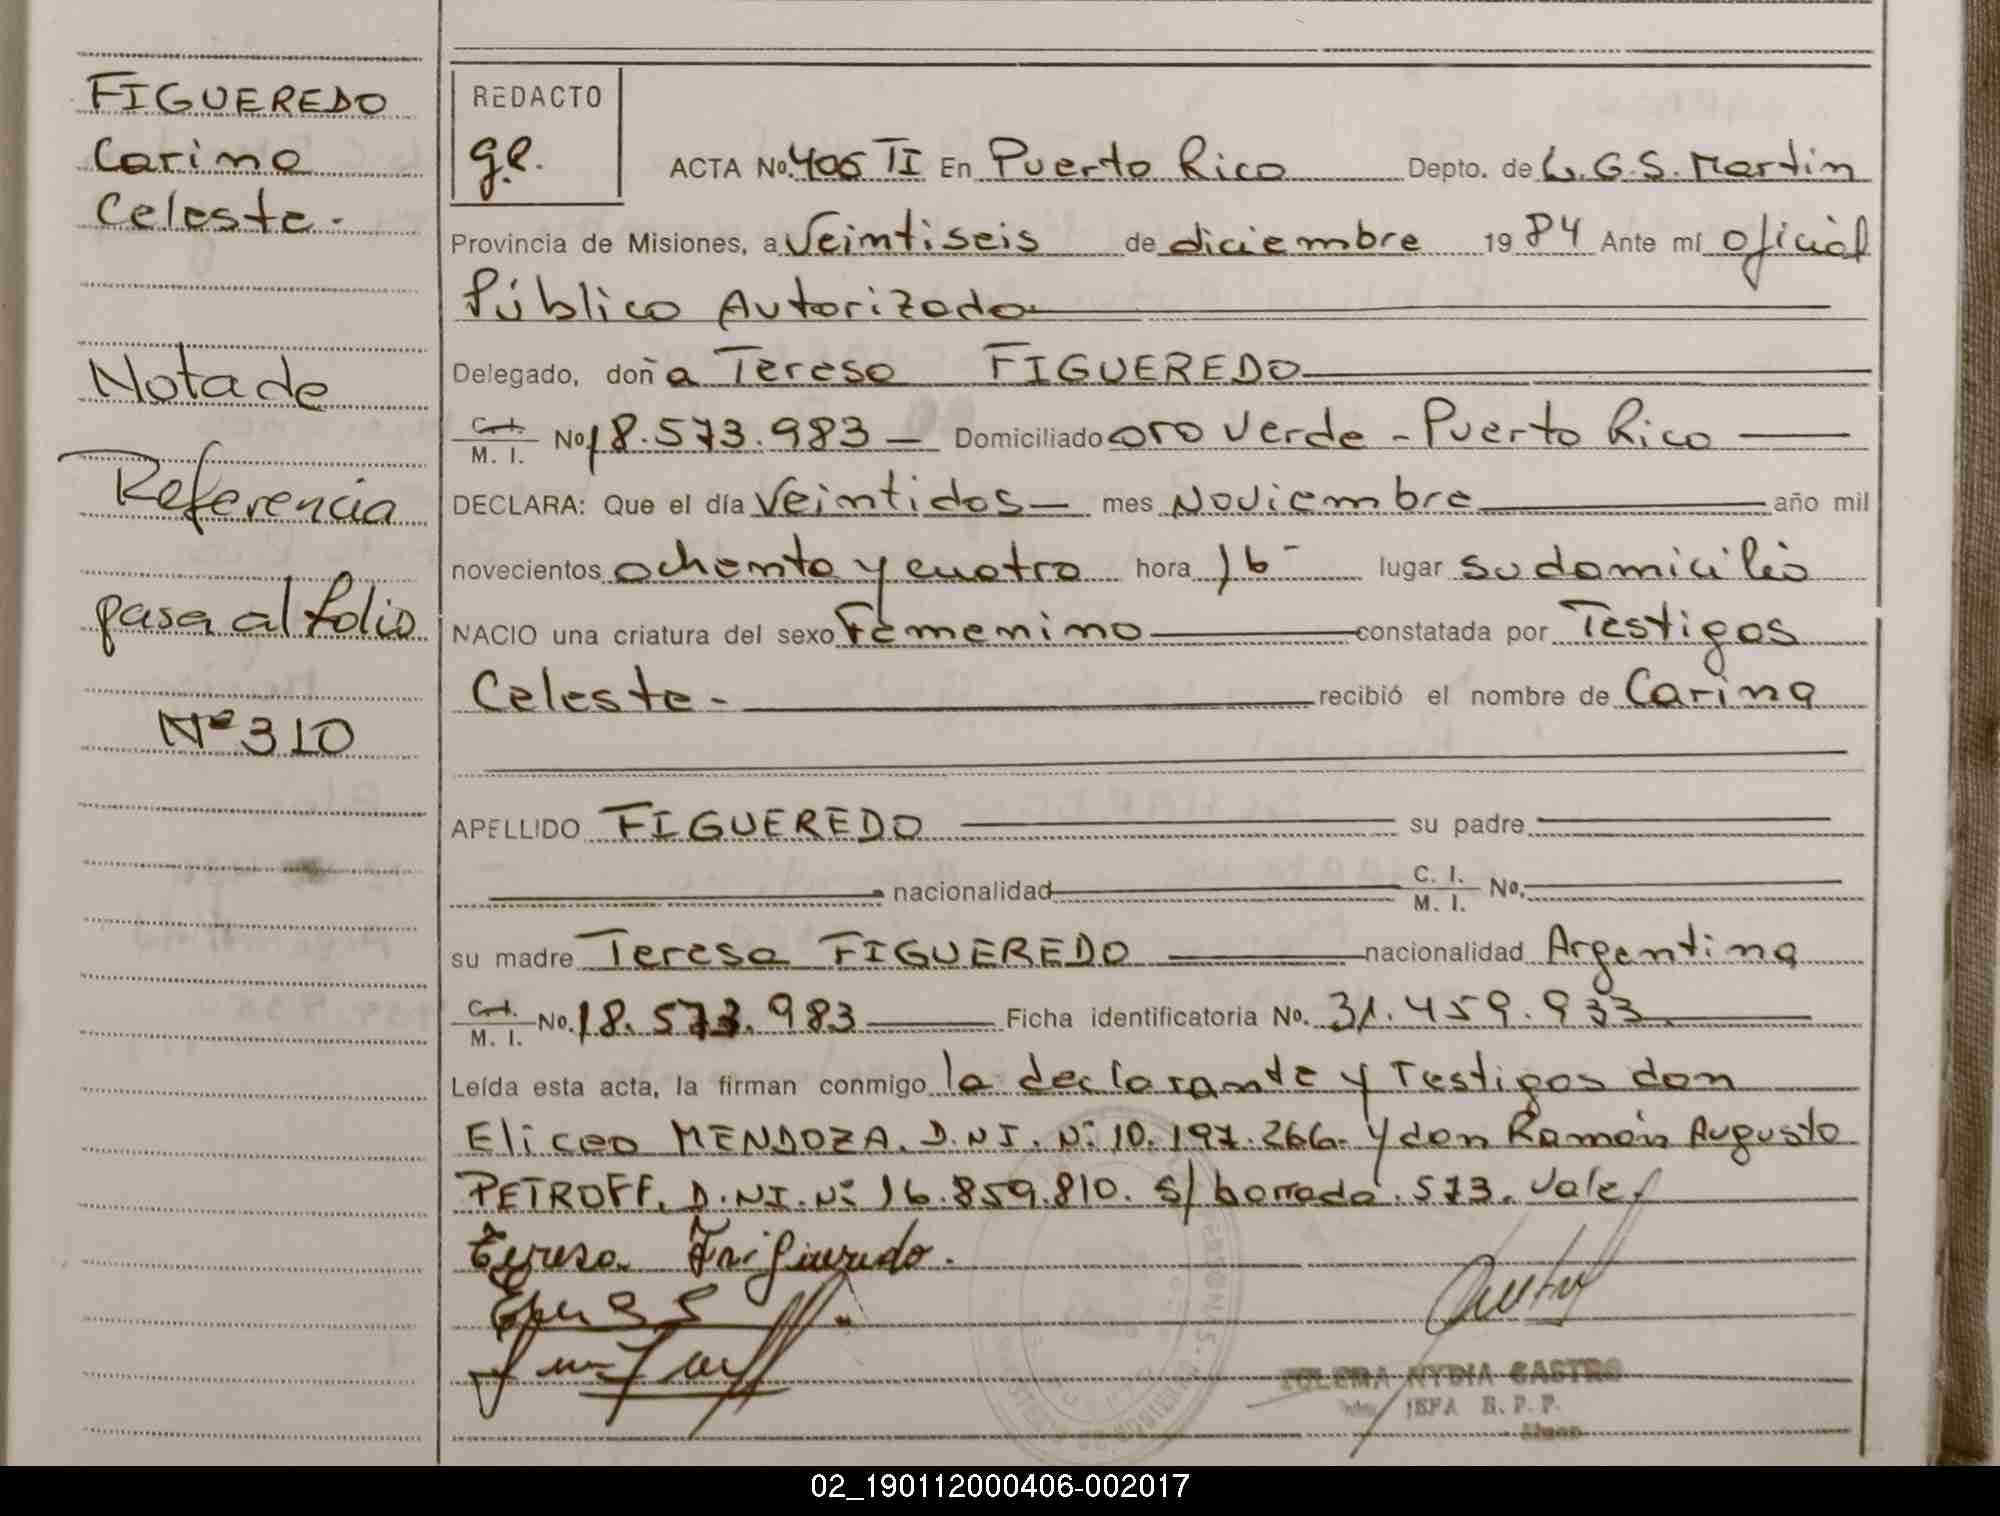 FIGUEREDO
Carina
Celeste.
Nota de
Referencia
pasa al folio
Nº 310
REDACTO
g.e.
ACTA No. 406 TI En Puerto Rico Depto. de L.G.S. Martin
Provincia de Misiones, a Veintiseis de diciembre 1984 Ante mí oficial
Público Autorizado
Delegado, doña Teresa FIGUEREDO
C. I. / M. I. No. 18.573.983 Domiciliado oro verde - Puerto Rico
DECLARA: Que el día Veintidos mes Noviembre año mil
novecientos ochenta y cuatro hora 16 lugar su domicilio
NACIO una criatura del sexo Femenino constatada por Testigos
Celeste. recibió el nombre de Carina
APELLIDO FIGUEREDO su padre
nacionalidad C. I. / M. I. No.
su madre Teresa FIGUEREDO nacionalidad Argentina
C. I. / M. I. No. 18.573.983 Ficha identificatoria No. 31.459.933
Leída esta acta, la firman conmigo la declarante y Testigos don
Eliceo MENDOZA. D.N.I. Nº 10.197.266. y don Ramón Augusto
PETROFF. D.N.I. Nº 16.859.810. s/ borrado. 573. Vale
Teresa Figueredo.
NYDIA CASTRO
JEFA R. P. P.
02_190112000406-002017